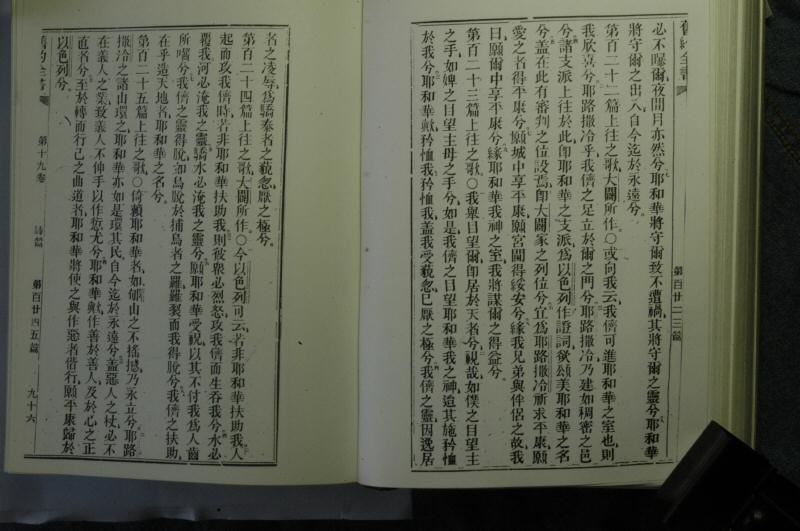 舊約全書
第百廿二三篇
必不曝爾夜間月亦然兮耶和華將守爾致不遭禍其將守爾之靈兮耶和華
將守爾之出入自今迄於永遠兮
第百二十二篇上往之歌大闢所作○或向我云我儕可進耶和華之室也則
我欣喜兮耶路撒冷乎我儕之足立於爾之門兮耶路撒冷乃建如稠密之邑
兮諸支派上往於此卽耶和華之支派為以色列作證詞欲頌美耶和華之名
兮蓋在此有審判之位設焉卽大闢家之列位兮宜為耶路撒冷祈求平康願
愛之者得平康兮願城中享平康願宮闕得綏安兮緣我兄弟與伴侶之故我
曰願爾中享平康兮緣耶和華我神之室我將謀爾之得益兮
第百二十三篇上往之歌○我舉目望爾卽居於天者兮視哉如僕之目望主
之手如婢之目望主母之手兮如是我儕之目望耶和華我之神迨其施矜恤
於我兮耶和華歟矜恤我矜恤我蓋我受藐忽已厭之極兮我儕之靈因逸居
者之凌辱為驕泰者之藐忽厭之極兮
第百二十四篇上往之歌大闢所作○今以色列可云若非耶和華扶助我人
起而攻我儕時若非耶和華扶助我則彼衆必烈怒攻我儕而生吞我兮水必
覆我河必淹我之靈驕水必淹我之靈兮願耶和華受祝以其不付我為人齒
所囓兮我儕之靈得脫如鳥脫於捕鳥者之羅羅裂而我得脫兮我儕之扶助
在乎造天地者耶和華之名兮
第百二十五篇上往之歌○倚賴耶和華者如郇山之不搖撼乃永立兮耶路
撒冷之諸山環之耶和華亦如是環其民自今迄於永遠兮蓋惡人之杖必不
在義人之業致義人不伸手以作愆尤兮耶和華歟作善於善人及於心之正
直者兮至於轉而行己之曲道者耶和華將使之與作惡者偕行願平康歸於
以色列兮
舊約全書
第十九卷
詩篇
第百廿四五篇
九十六